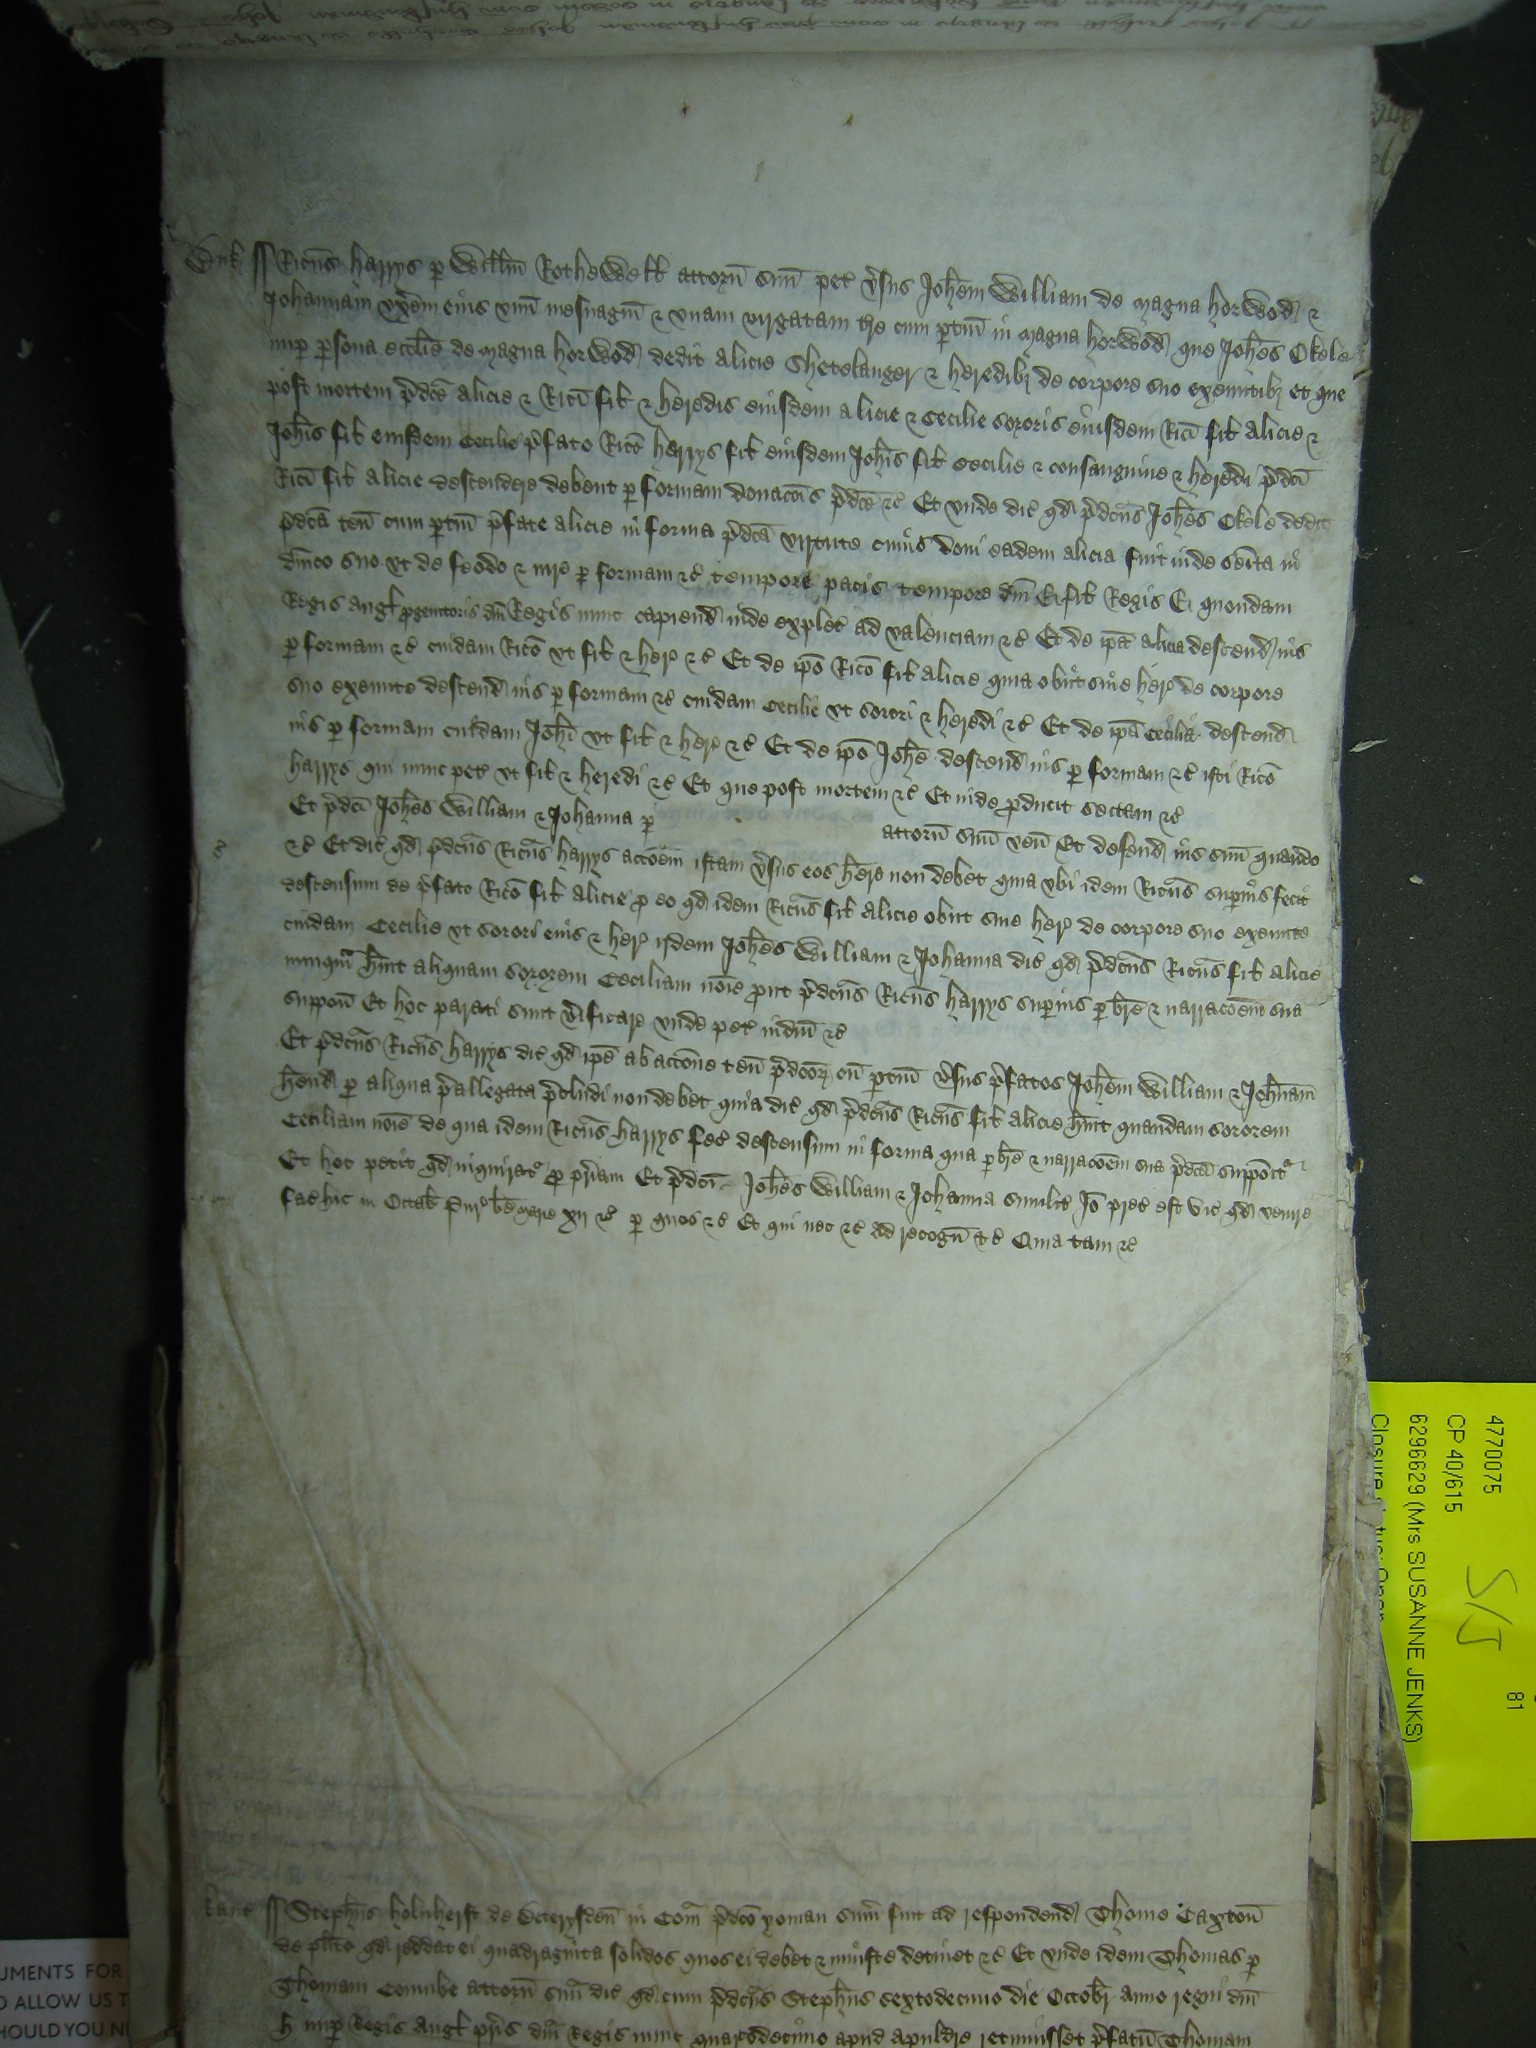 Buk Ricūs harrys p Willm̄ Rothewell attorn̄ suū pet v̄sus Joħem William de magna horwod &
Johannam vxēm eius vnū mesuagiū & vnam virgatam tr̄e cum ptiñ in magna horwod que Joħes Okele
nup psona eccīe de magna horwod dedit alicie Shetelanger & heredib3 de corpore suo exeuntib3 et que
post mortem p̄dcē alicie & Ricī fil & heredis eiusdem alicie & Cecilie sororis eiusdem Ricī fil alicie &
Joħis fil eiusdem Cecilie p̄fato Ricō harrys fil eiusdem Joħis fil Cecilie & consanguineo & heredi p̄dcī
Ricī fil alicie descendere debent p formam donacōis p̄dcē &c̄ Et vnde dic̄ qd p̄dcūs Joħes Okele dedit
p̄dcā teñ cum ptiñ p̄fate alicie in forma p̄dcā virtute cuius doni eadem alicia fuit inde seīta in
dñico suo vt de feodo & iure p formam &c̄ tempore pacis tempore dñi E fil Regis E quondam
Regis angł progenitoris dñi Regis nunc capiend inde explet̄ ad valenciam &c̄ Et de ip̄a alicia descend ius
p formam &c̄ cuidam Ricō vt fil & her &c̄ Et de ip̄o Ricō fil alicie quia obijt sine her de corpore
suo exeunte descend ius p formam &c̄ cuidam Cecilie vt sorori & heredi &c̄ Et de ip̄a Cecilia descend
ius p formam cuidam Joħi vt fil & her &c̄ Et de ip̄o Joħe descend ius p formam &c̄ isti Ricō
harrys qui nunc pet̄ vt fil & heredi &c̄ Et que post mortem &c̄ Et inde producit sectam &c̄
Et p̄dcī Joħes William & Johanna p attorn̄ suū veñ Et defend ius suū quando
&c̄ Et dic̄ qd p̄dcūs Ricūs harrys accōem istam v̄sus eos ħere non debet quia vbi idem Ricūs supius fecit
descensum de p̄fato Ricō fil alicie pro eo qd idem Ricūs fil alicie obijt sine her de corpore suo exeunte
cuidam Cecilie vt sorori eius & her ijdem Joħes William & Johanna dic̄ qd p̄dcūs Ricūs fil alicie
nunqm̄ ħuit aliquam sororem Ceciliam noīe prout p̄dcūs Ricūs harrys supius p br̄e & narracōem sua
suppoñ Et hoc parati sunt v̄ificare vnde pet̄ iudm̄ &c̄
Et p̄dcūs Ricūs harrys dic̄ qd ip̄e ab accione teñ p̄dcōr cū ptiñ v̄sus p̄fatos Joħem William & Joħnam
ħend p aliqua p̄allegata p̄cludi non debet quia dic̄ qd p̄dcūs Ricūs fil alicie ħuit quandam sororem
Ceciliam noīe de qua idem Ricūs harrys fec̄ descensum in forma qua p br̄e & narracōem sua p̄dcā suppōit
Et hoc petit qd inquirat p pr̄iam Et p̄dcī Joħes William & Johanna similit̄ Iō prec̄ est vic̄ qd venire
fac̄ hic in Octab Pur be marie xij &c̄ p quos &c̄ Et qui nec &c̄ ad recogn̄ &c̄ Quia tam &c̄
kanc Stephūs holnherst de Betrysdeñ in Com̄ p̄dcō yoman sum̄ fuit ad respondend Thome Caxton̄
de plīto qd reddat ei quadraginta solidos quos ei debet & iniuste detinet &c̄ Et vnde idem Thomas p
Thomam attorn̄ suū dic̄ qd cum p̄dcūs Stephūs sextodecimo die Octobr anno regni dñi
H nup Regis Angł pr̄is dñi Regis nunc quartodecimo apud apuldre retinuisset p̄fatū Thomam
4770075
CP 40/615
6296629 (Mrs SUSANNE JENKS)
S/J
81
UMENTS FOR
O ALLOW US T
HOULD YOU N